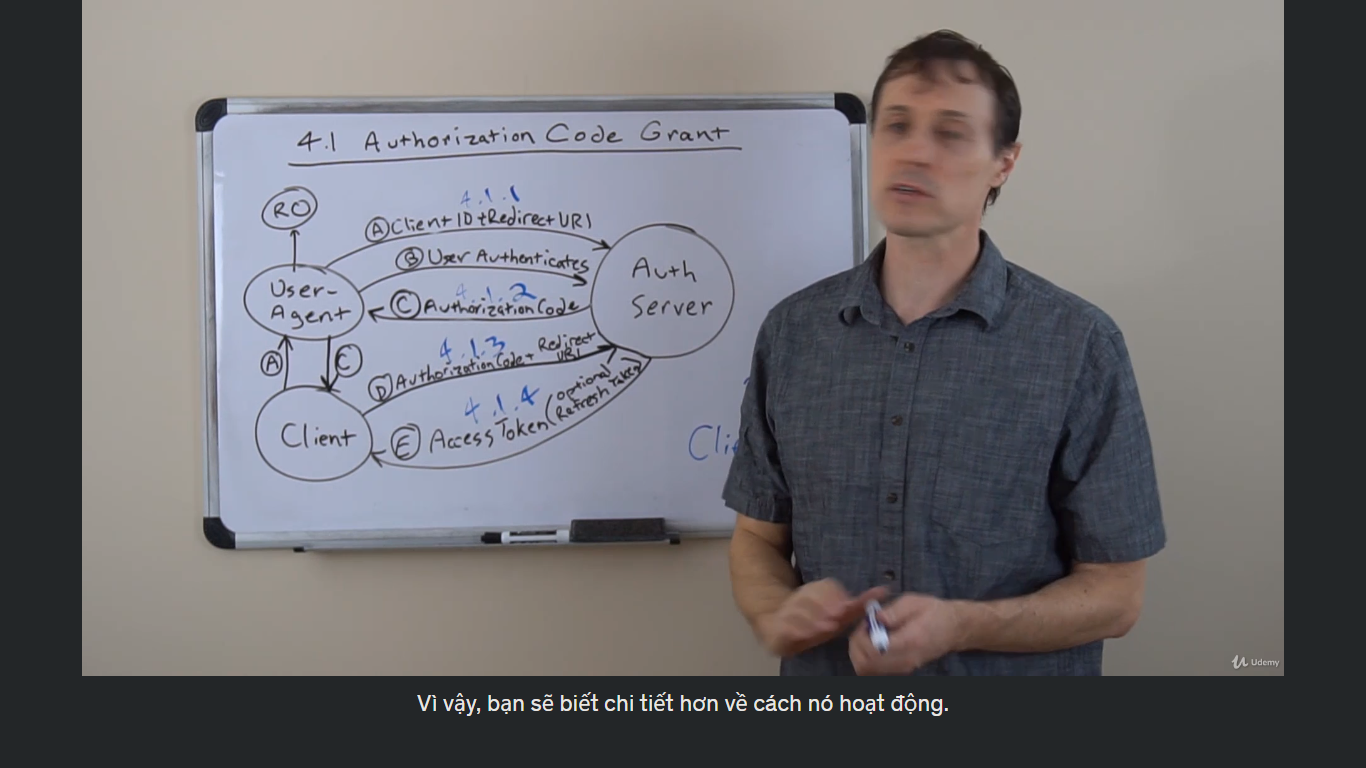 4.1 Authorization Code Grant
RO
4.1.1
A Client ID + Redirect URI
B User Authenticates
User-
Agent
4.1.2
C Authorization Code
Auth
Server
A
C
4.1.3
D Authorization Code + Redirect
URI
4.1.4
E Access Token (optional
Refresh Token)
Client
Clie
Udemy
Vì vậy, bạn sẽ biết chi tiết hơn về cách nó hoạt động.